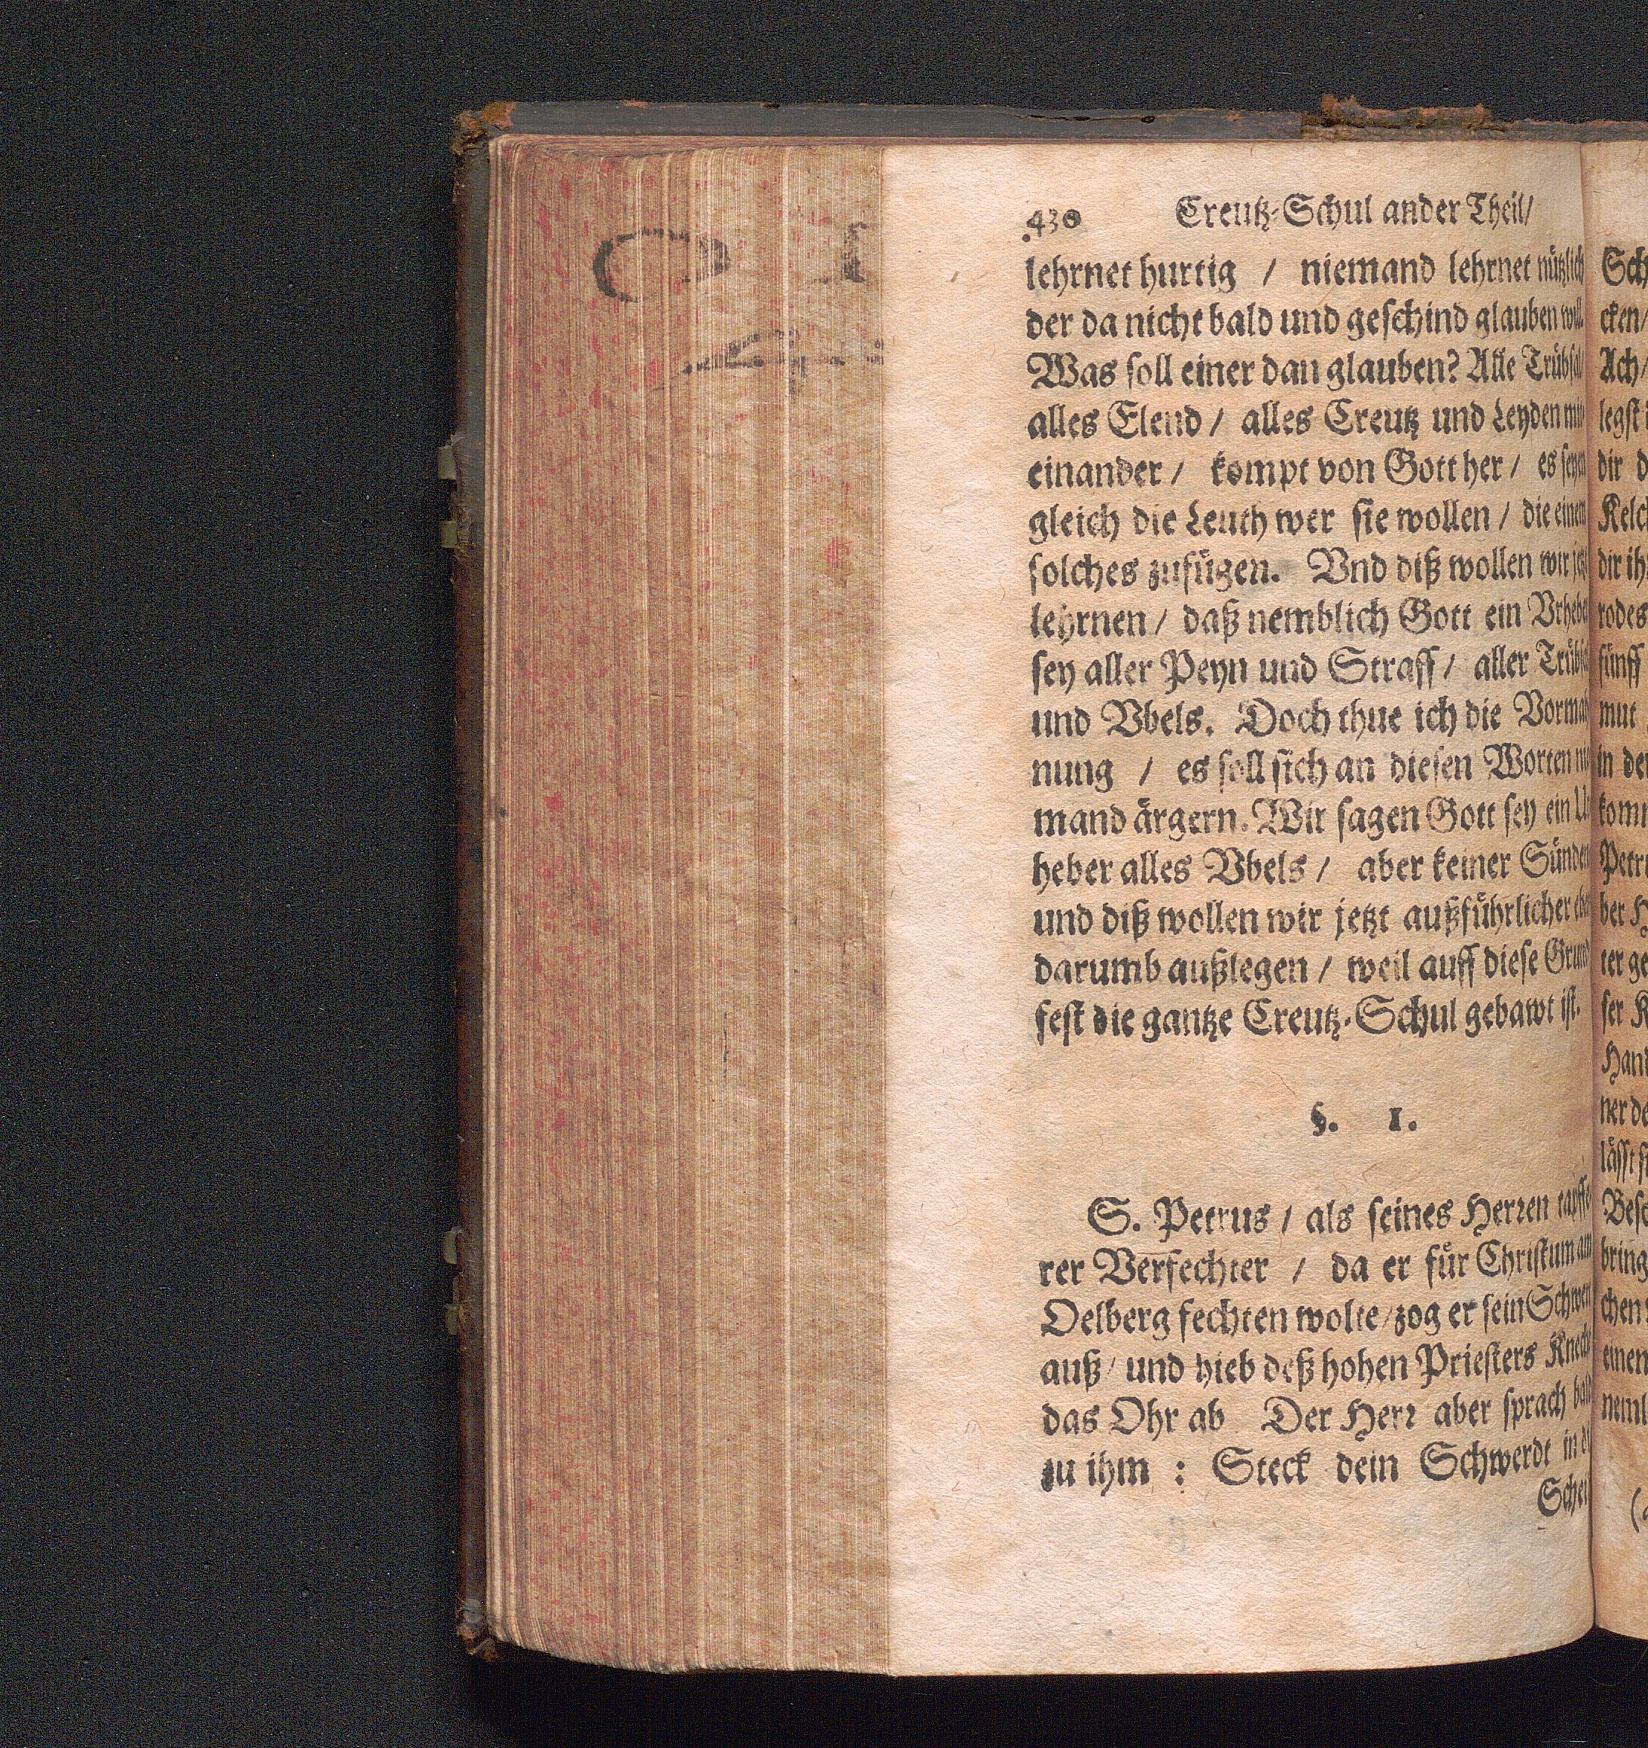 430 Creutz-Schul ander Theil/
lehrnet hurtig / niemand lehrnet nützlich
der da nicht bald und geschind glauben will.
Was soll einer dan glauben? Alle Trübsal/
alles Elend / alles Creutz und Leyden mit-
einander / kompt von Gott her / es seyen
gleich die Leuth wer sie wollen / die einem
solches zufügen. Vnd diß wollen wir jetzt
lehrnen / daß nemblich Gott ein Vrheber
sey aller Peyn und Straff / aller Trübsal
und Vbels. Doch thue ich die Vormah
nung / es soll sich an diesen Worten nie
mand ärgern. Wir sagen Gott sey ein Ur
heber alles Vbels / aber keiner Sünden
und diß wollen wir jetzt außführlicher
darumb außlegen / weil auff diese Grund
fest die gantze Creutz-Schul gebawt ist.
§. 1.
S. Petrus / als seines Herren tapffe-
rer Verfechter / da er für Christum am
Oelberg fechten wolte / zog er sein Schwerdt
auß / und hieb deß hohen Priesters Knecht
das Ohr ab Der Herr aber sprach bald
zu ihm : Steck dein Schwerdt in
Schei
Sch
cken/
Ach/
legst
dir
Kelch
dir
fünff
mut
in
ber
ser
Hand
ner
lässt
bring
chen
einen